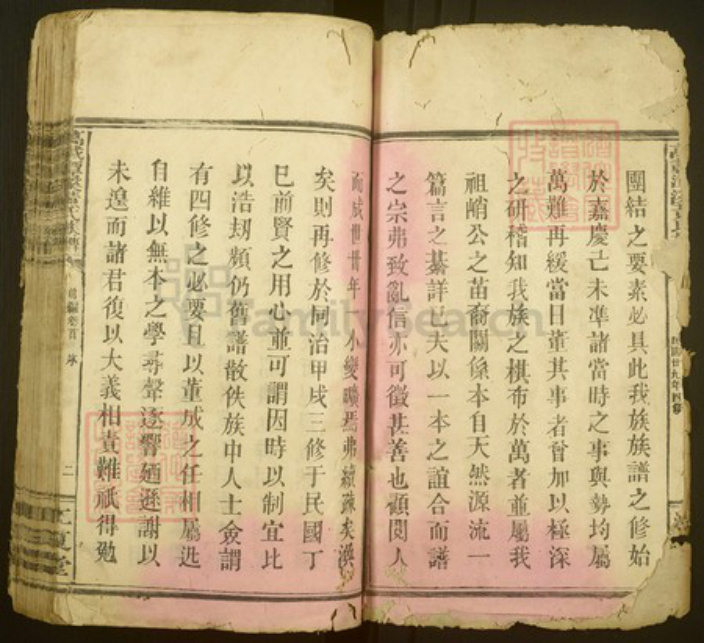 團結之要素必具此我族族譜之修始
於嘉慶己未準諸當時之事與勢均屬
萬難再緩當日董其事者曾加以極深
之研稽知我族之棋布於萬者並屬我
祖峭公之苗裔關係本自天然源流一
篇言之綦詳已夫以一本之誼合而譜
之崇弗致亂信亦可徵甚善也顧閱人
而成世卅年 小變曠焉弗續踈矣漠
矣則再修於同治甲戌三修于民國丁
巳前賢之用心並可謂因時以制宜比
以浩刼頻仍舊譜散佚族中人士僉謂
有四修之必要且以董成之任相屬迯
自維以無本之學尋聲逐響廼遜謝以
未遑而諸君復以大義相責難祇得勉
前編卷首 序
二
民國廿九年四修
FamilySearch